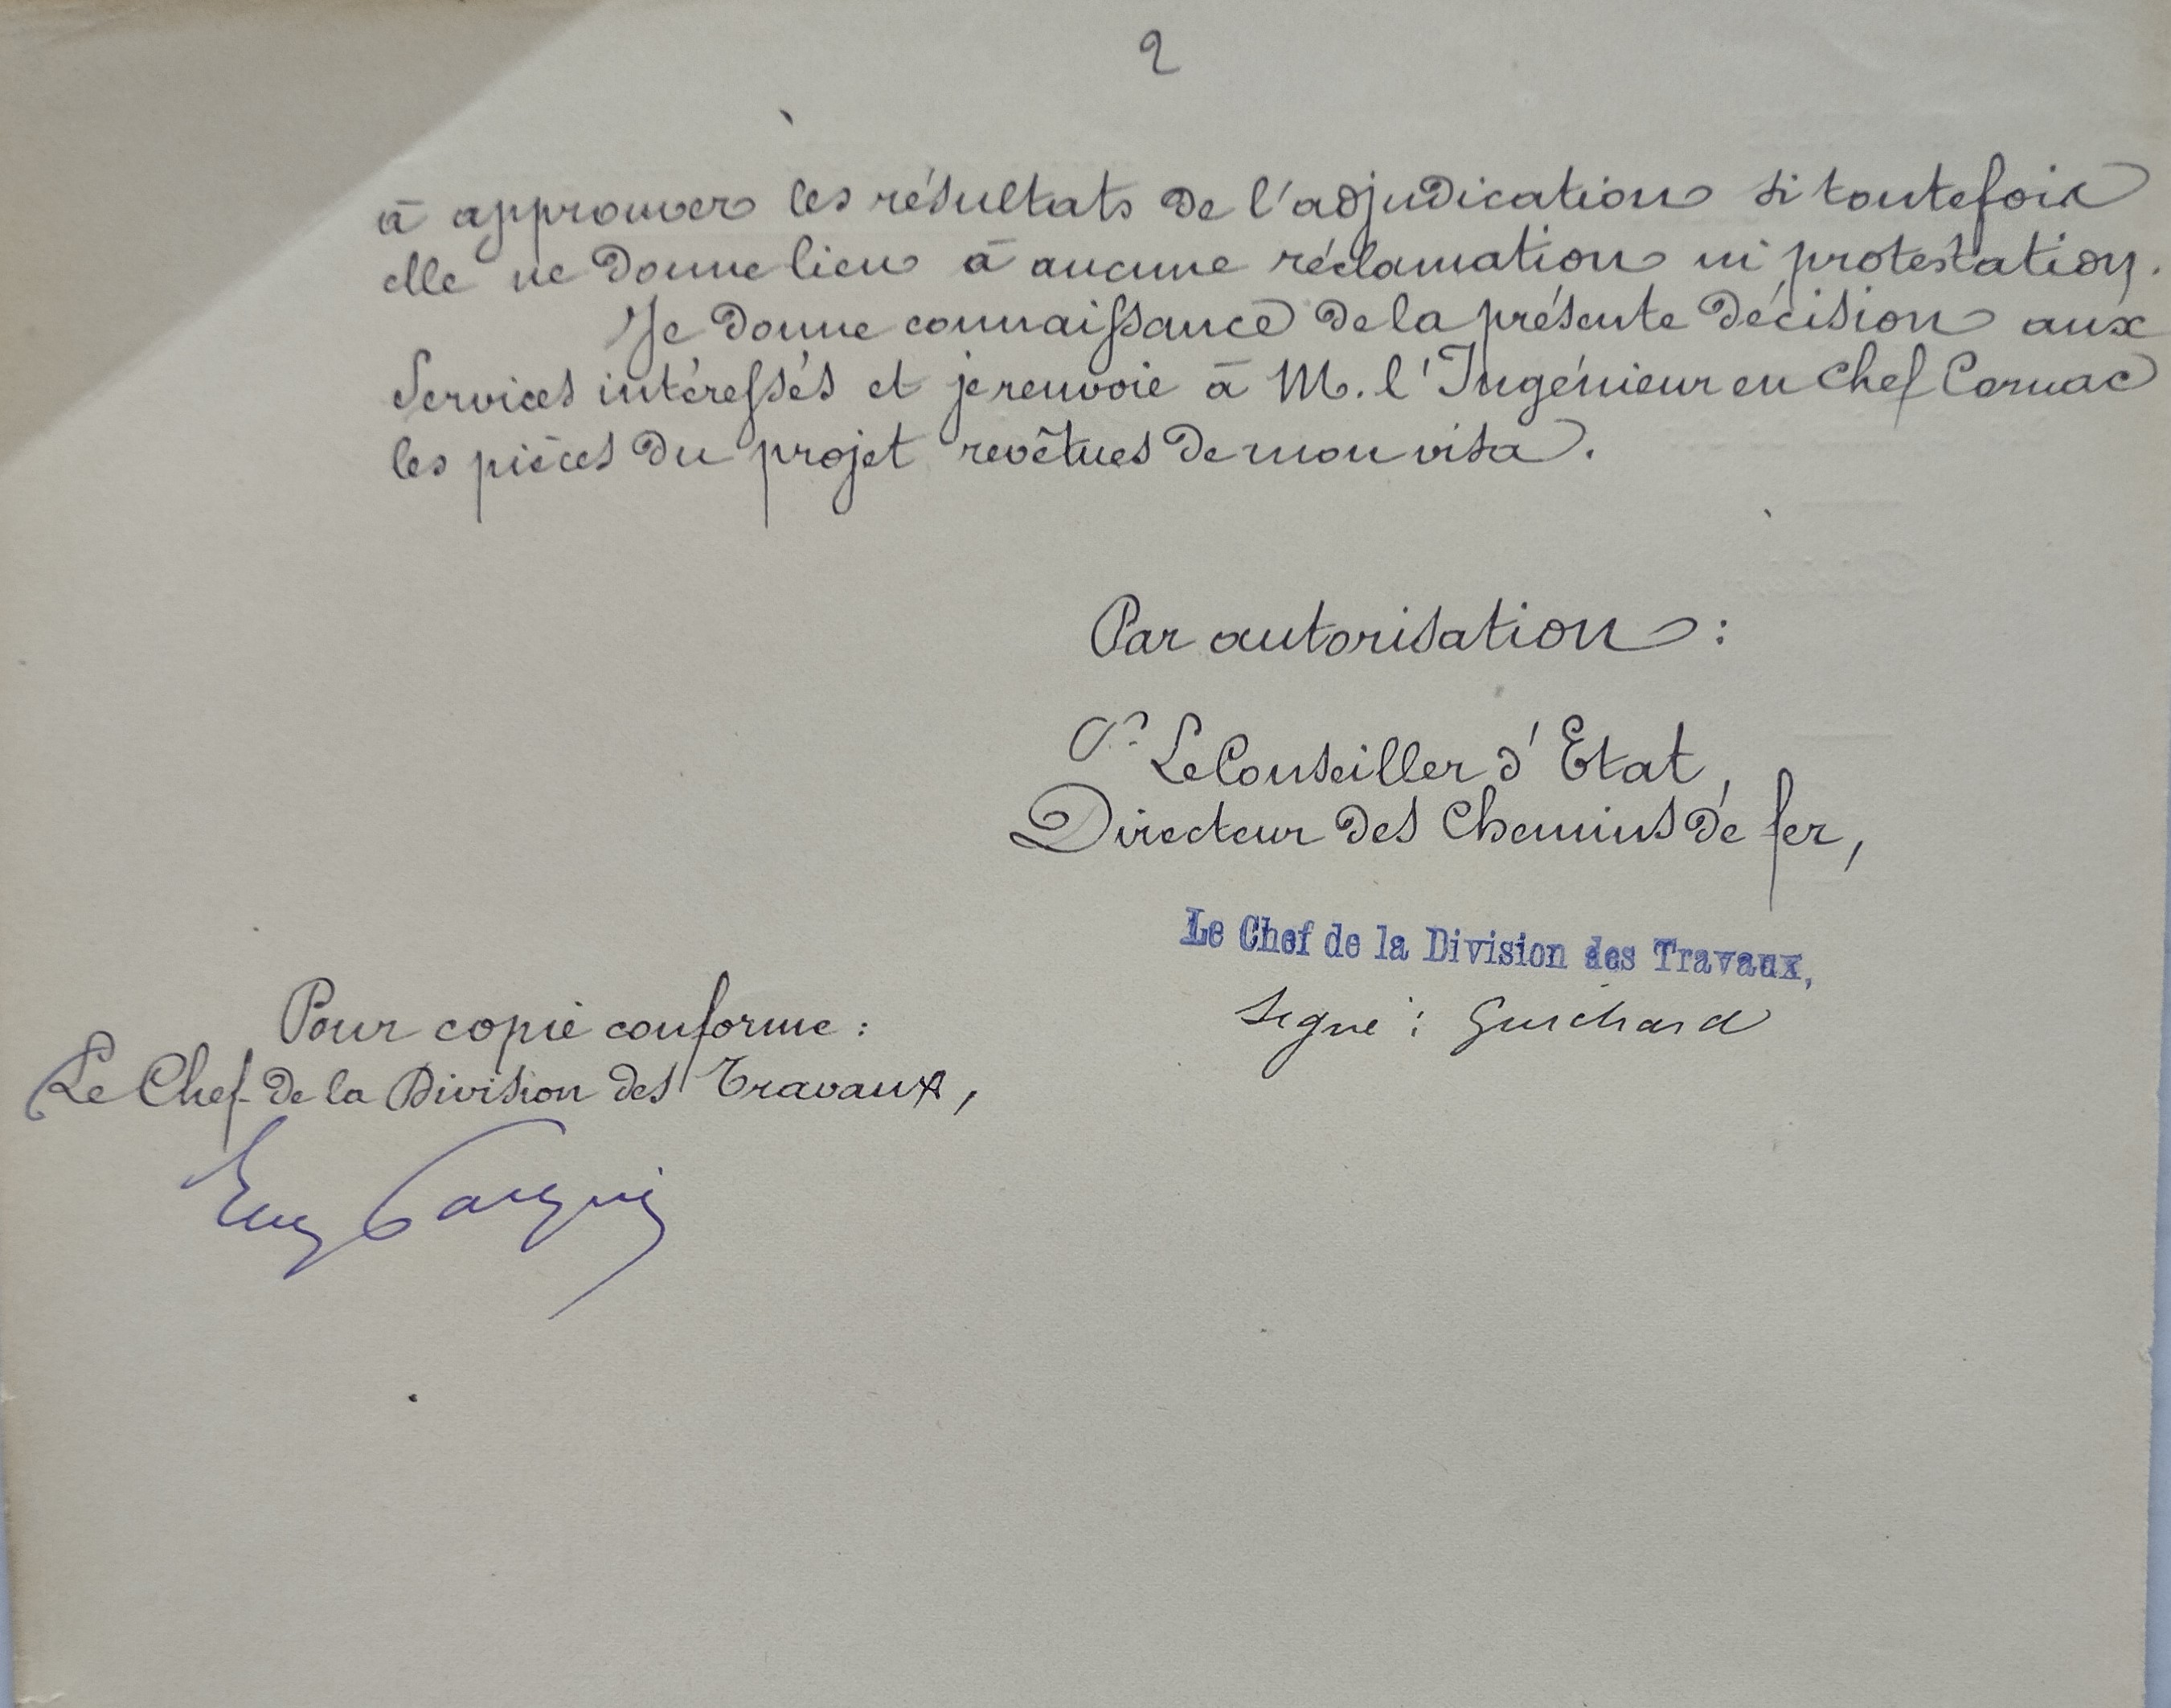 2
à approuver les résultats de l'adjudication si toutefois
elle ne donne lieu à aucune réclamation ni protestation.
Je donne connaissance de la présente décision aux
Services intéressés et je renvoie à M. l'Ingénieur en chef Cornac
les pièces du projet revêtues de mon visa.
Par autorisation :
Pr Le Conseiller d'Etat,
Directeur des Chemins de fer,
Le Chef de la Division des Travaux,
Signé : Guichard
Pour copie conforme :
Le Chef de la Division des Travaux,